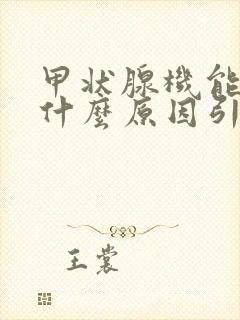 甲状腺機能
什麼原因引
王裳